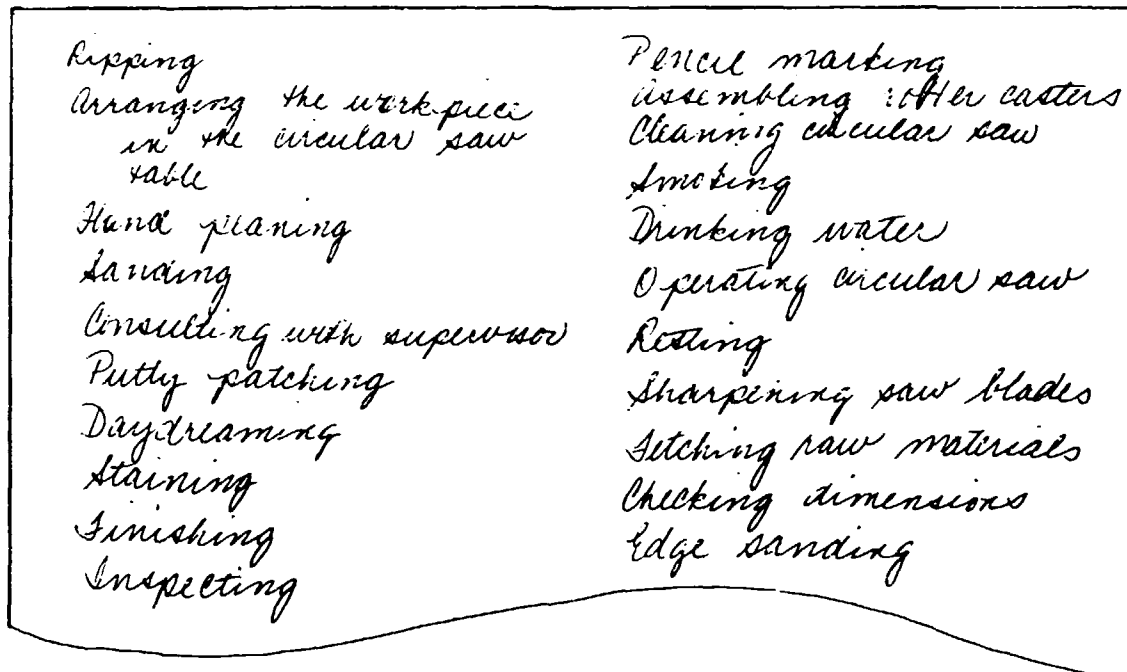 Ripping
Arranging the workpiece
in the circular saw
table
Hand planing
Sanding
Consulting with supervisor
Putty patching
Daydreaming
Staining
Finishing
Inspecting
Pencil marking
Assembling roller casters
Cleaning circular saw
Smoking
Drinking water
Operating circular saw
Resting
Sharpening saw blades
Fetching raw materials
Checking dimensions
Edge sanding